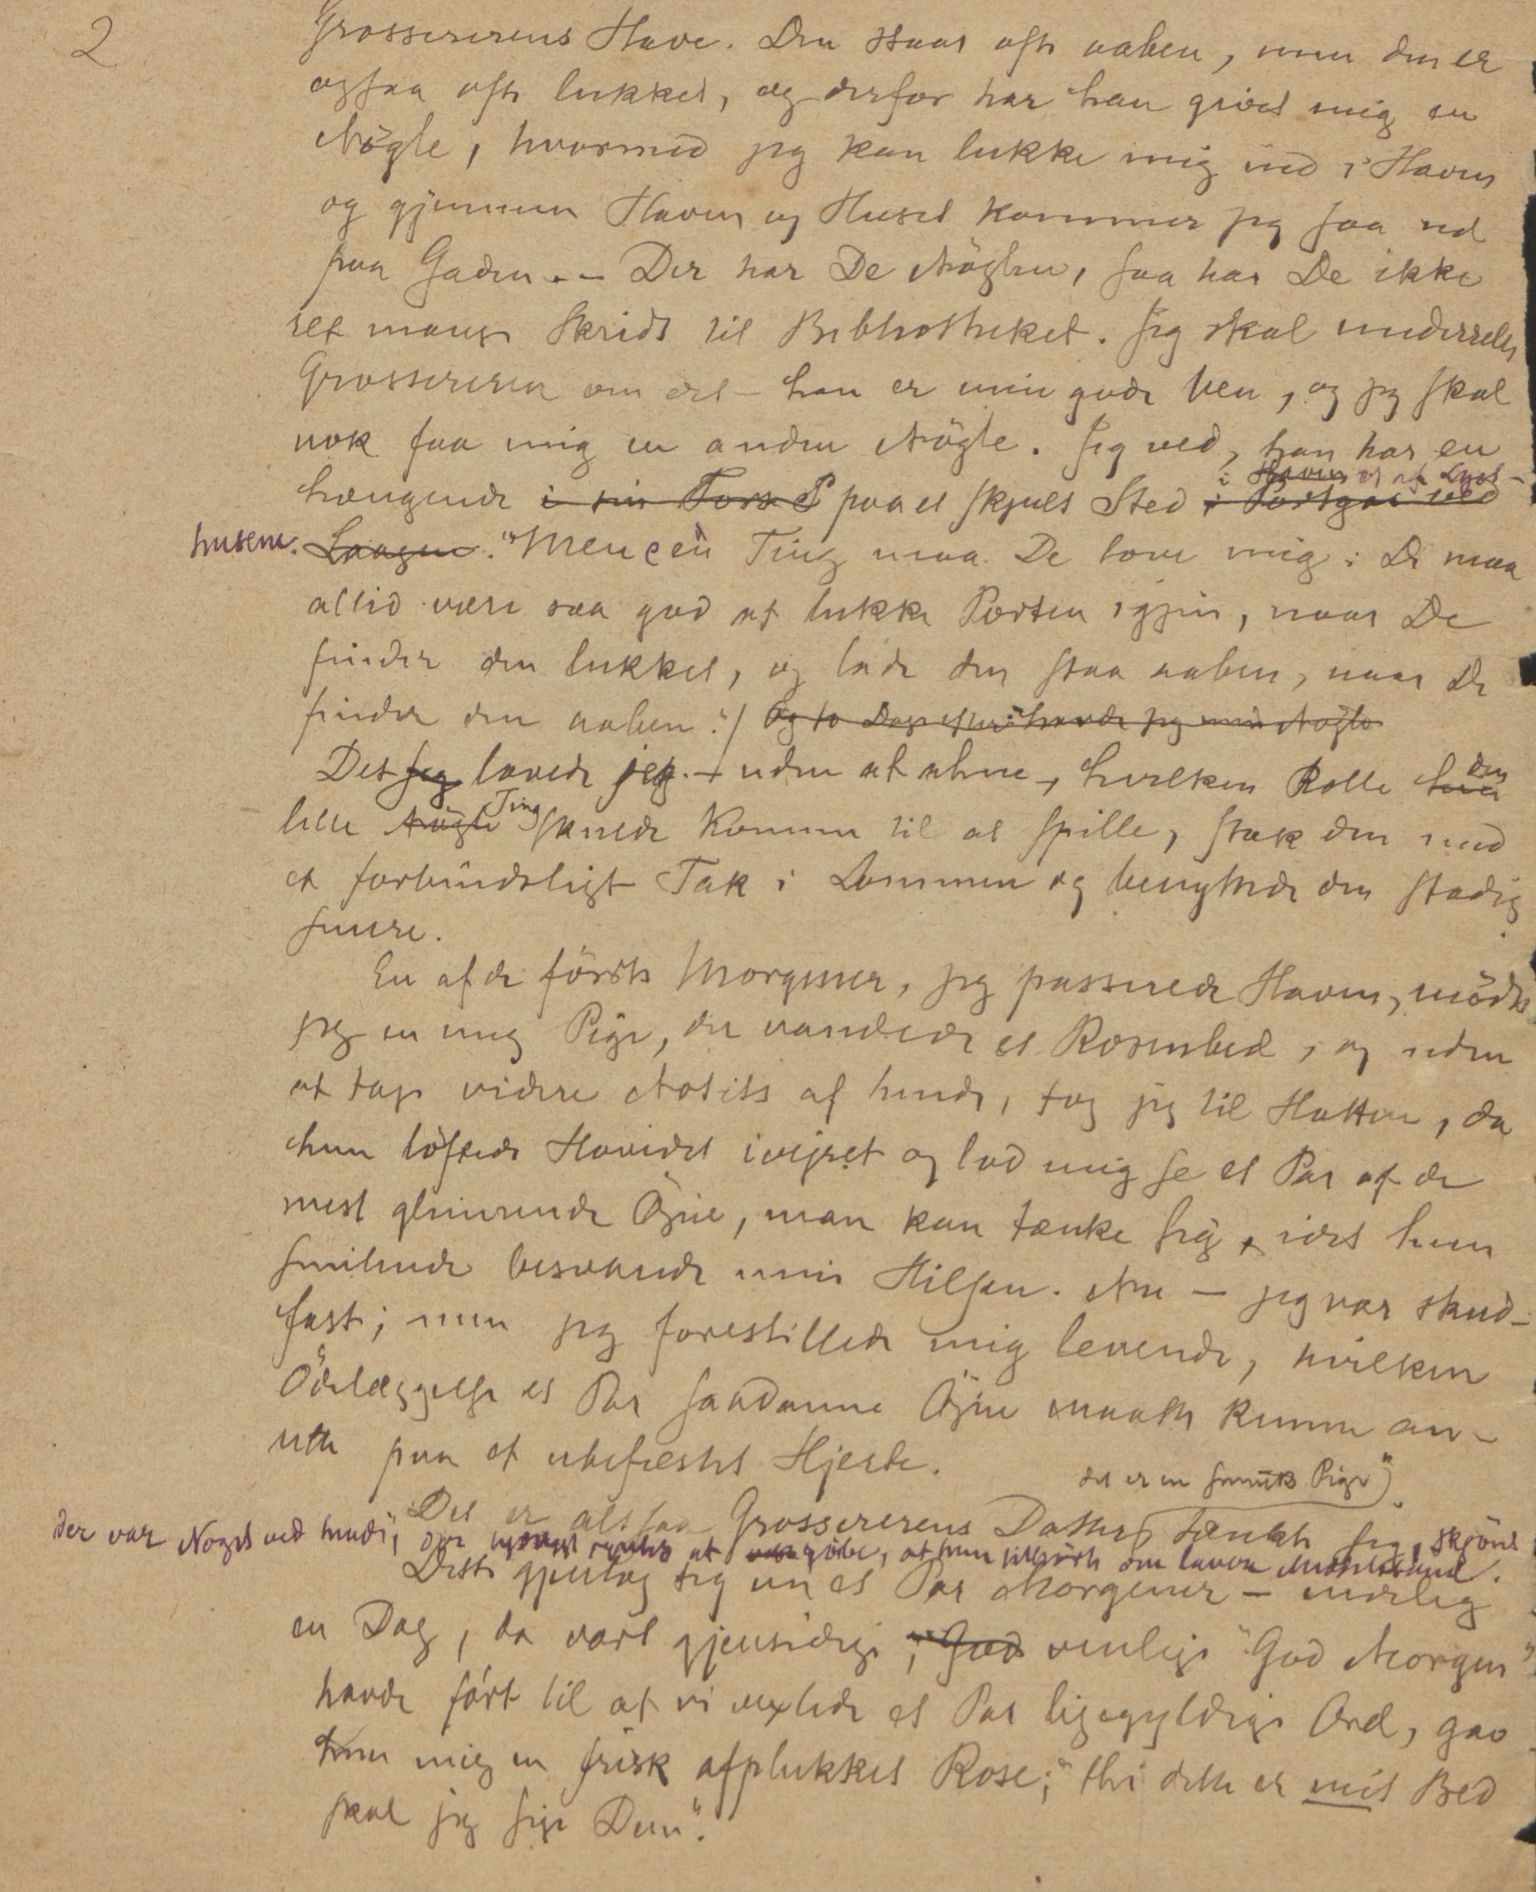 2
Grossererens Have. Den staar ofte aaben, men den er
ogsaa ofte lukket, og derfor har han givet mig en
Nögle, hvormed jeg kan lukke mig ind i Haven
og gjennem Haven og Huset kommer jeg saa ud
paa Gaden. – Der har De Nöglen, saa har De ikke
ret mange Skridt til Bibliotheket. Jeg skal underrette
Grossereren om det – han er min gode Ven, og jeg skal
nok faa mig en anden Nögle. Jeg ved, han har en
i Haven et af Lyst-
hængende i sin paa et skjult Sted i ved
husene. Laagen." Men een Ting maa De love mig: De maa
altid være saa god at lukke Porten igjen, naar De
finder den lukket, og lade den staa aaben, naar De
finder den aaben." / Og to Dage efter havde jeg min Nögle
Det jeg lovede jeg. – uden at ahne, hvilken Rolle den
lille Nögle Ting skulde komme til at spille, stak den med
et forbindtligt Tak i Lommen og benyttede den stadig
senere.
En af de förste Morgener, jeg passerede Haven, mödte
jeg en ung Pige, der vandede et Rosenbed, og uden
at tage videre Notits af hende, tog jeg til Hatten, da
hun löftede Hovedet ivejret og lod mig se et Par af de
mest glimrende Öjne, man kan tænke sig, idet hun
smilende besvarede min Hilsen. Nu – jeg var skud-
fast; men jeg forestillede mig levende, hvilken
Ödelæggelse et Par saadanne Öjne maatte kunne an-
rette paa et ubefæstet Hjerte.
det er en smuk Pige")
Det er altsaa Grossererens Datter tænkte jeg, skjönt
der var Noget ved hende, der at, at hun tilhörte den lavere Middelstand.
Dette gjentog sig en et Par Morgener – endelig
en Dag, da vort gjensidige, "God venlige "God Morgen"
havde fört til at vi vexlede et Par ligegyldige Ord, gav
hun mig en frisk afplukket Rose; "thi dette er mit Bed
skal jeg sige Dem".